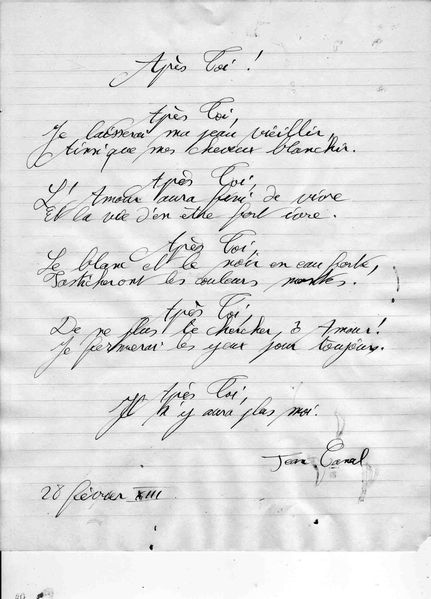 Après Toi !
Après Toi,
Je laisserai ma peau vieillir,
Ainsi que mes cheveux blanchir.
Après Toi,
L'Amour aura fini de vivre
Et la vie d'en être fort ivre.
Après Toi,
Le blanc et le noir en eau forte,
Pasticheront les couleurs mortes.
Après Toi,
De ne plus te chercher, ô Amour!
Je fermerai les yeux pour toujours.
Après Toi,
Il n'y aura plus moi.
Jean Canal
28 février XIII